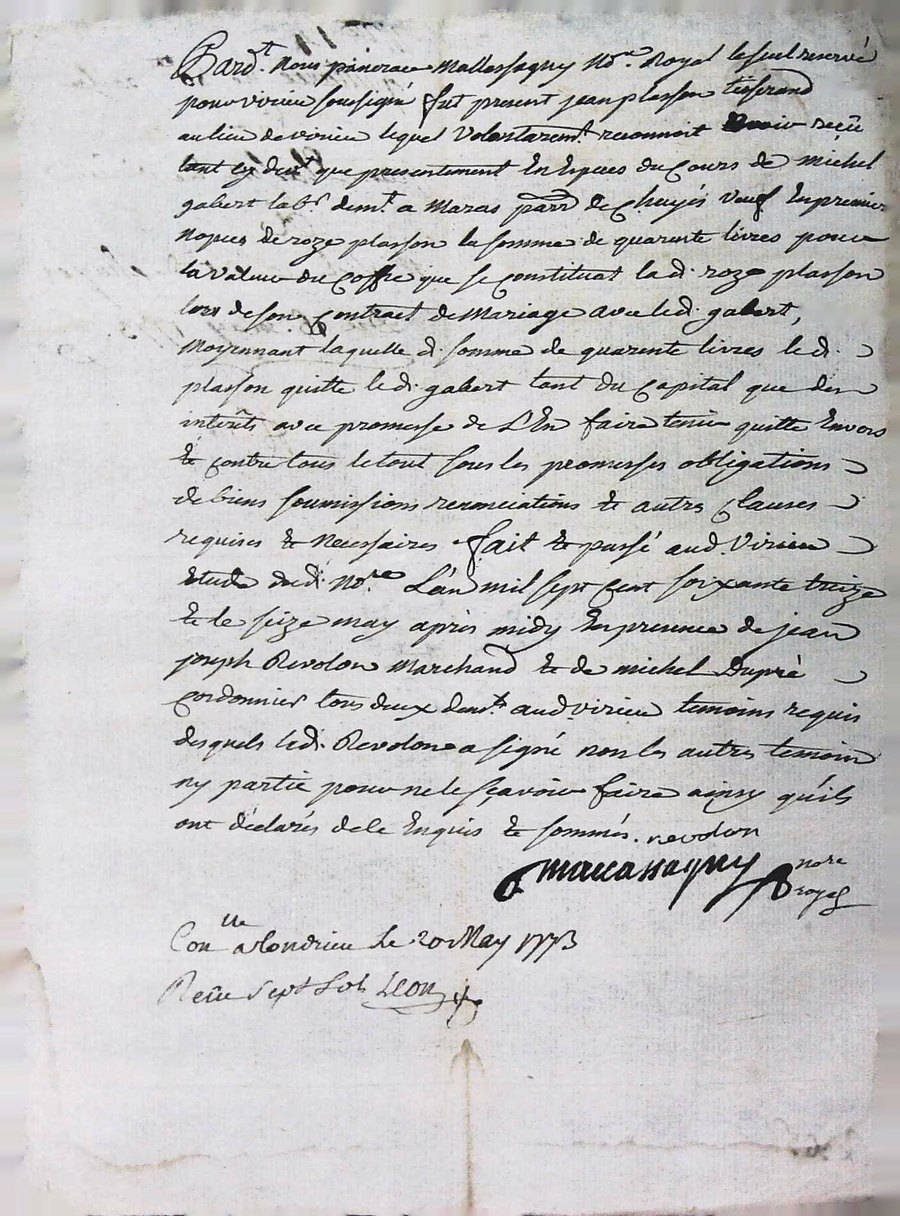 Pardt. Nous pancrace Mallassagny Nore. Royal le seul reservé
pour virieu soussigné fut present jean plasson tisserand
au lieu de virieu lequel Volontaremt. reconnoit avoir reçû
tant cy devt. que presentement En Especes du Cours de michel
gabert labr. demt. a Maras parr. de Chuyés veuf En premier
Nopces de roze plasson la somme de quarente livres pour
la valeur du Coffre que se Constituat la d. roze plasson
lors de son Contract de Mariage avec led. gabert,
Moyennant laquelle d. somme de quarente livres le d.
plasson quitte le d. gabert tant du Capital que des
interêts avec promesse de L'En faire tenir quitte Envers
& contre tous le tout sous les promesses obligations
de biens soumissions renonciations & autres Clauses
requises & Necessaires fait & passé aud. Virieu
Etude dud. Nore. L'an mil sept Cent soixante treize
& le seize may après midy En presence de jean
joseph Revolon Marchand & de michel Dupré
Cordonnier tous deux demts. aud. virieu temoins requis
desquels led. Revolon a signé non les autres temoin
ny partie pour ne le sçavoir faire ainsy qu'ils
ont déclarés de ce Enquis & sommés. revolon
mallassagny nore
royal
Conlle a Condrieu le 20 May 1773
Reçu sept sols